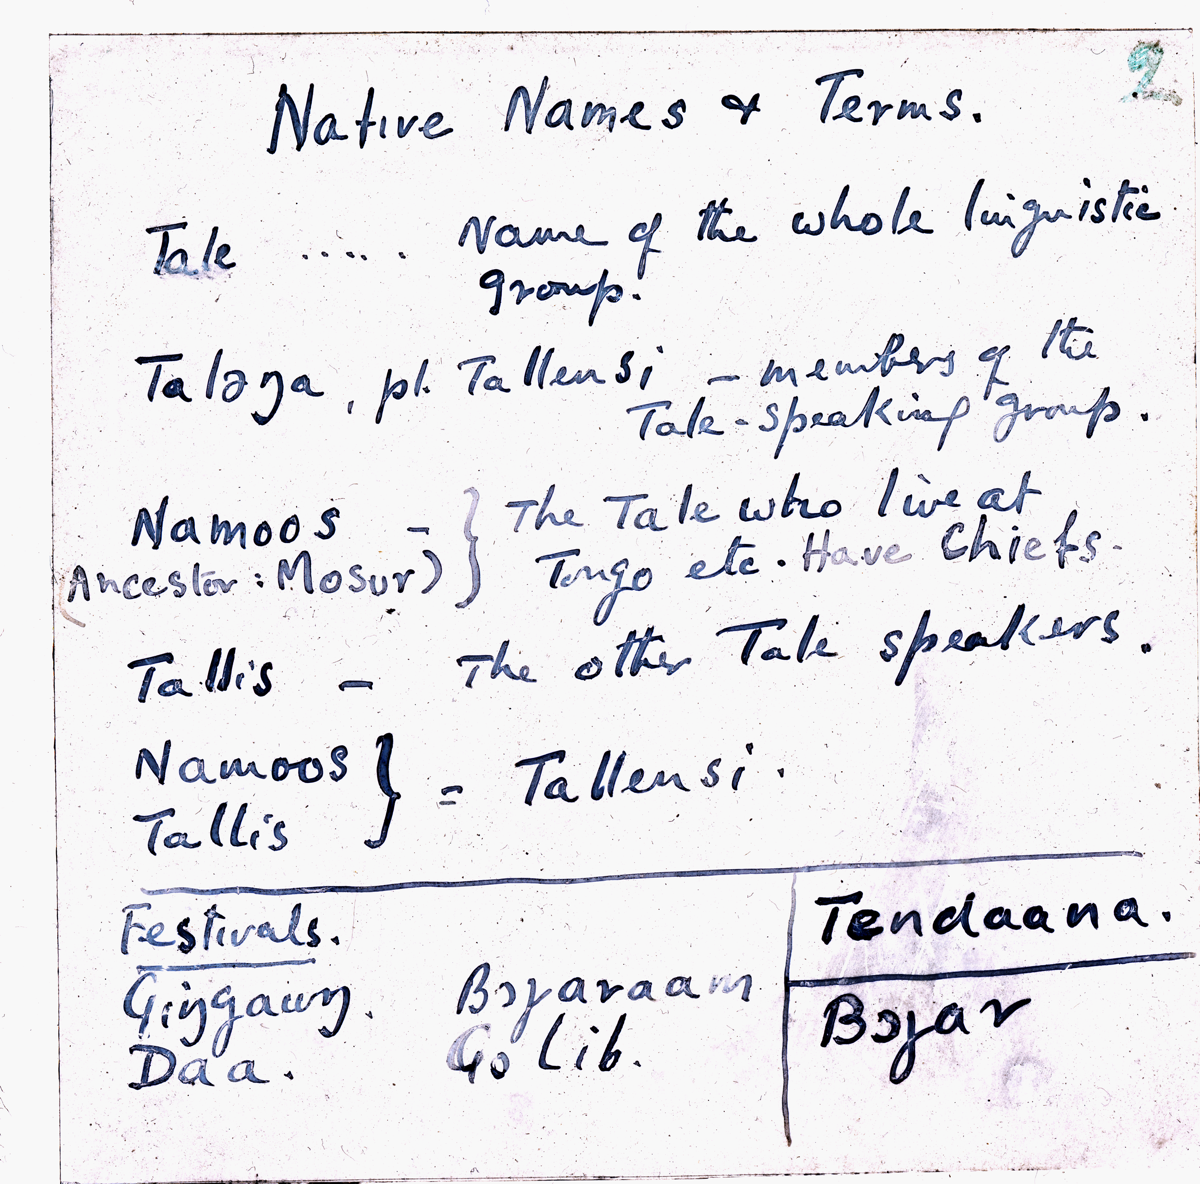 2
Native Names & Terms.
Tale ..... Name of the whole linguistic
group.
Taləŋa, pl. Tallensi – members of the
Tale-speaking group.
Namoos – } The Tale who live at
(Ancestor: Mosur) } Tongo etc. Have Chiefs.
Tallis – The other Tale speakers.
Namoos } = Tallensi.
Tallis
Festivals.
Giŋgawŋ. Bɔɣaraam
Daa. Golib.
Tendaana.
Bɔɣar